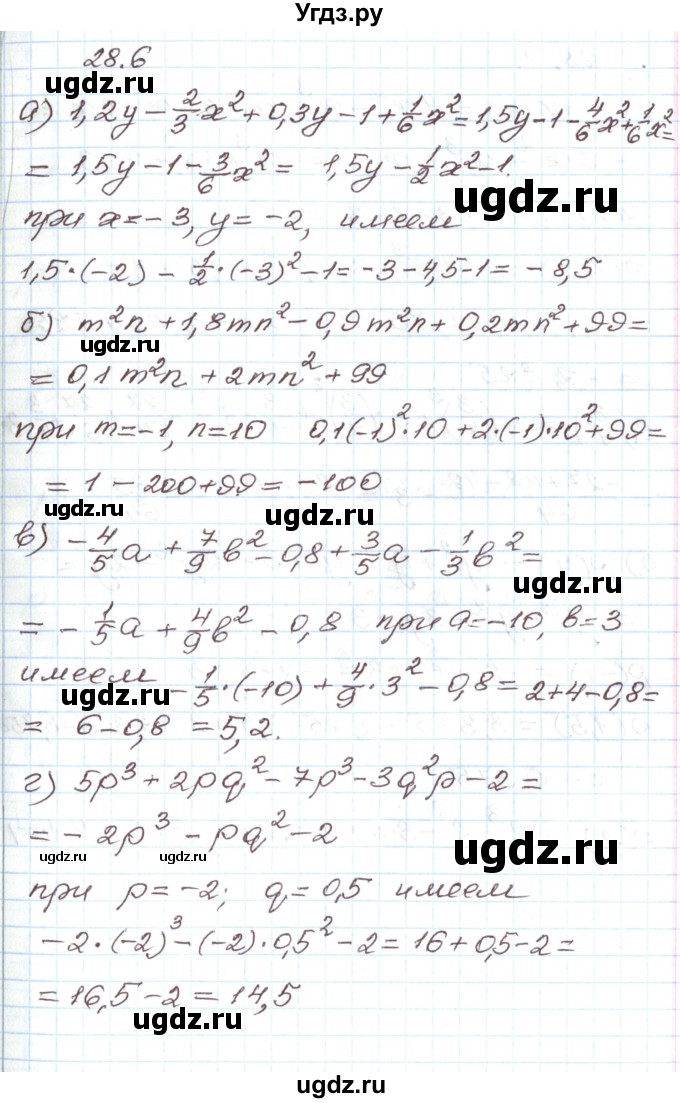 Угдз.ру
28.6
ugdz.ru
а) 1,2y - 2/3 x² + 0,3y - 1 + 1/6 x² = 1,5y - 1 - 4/6 x² + 1/6 x² =
= 1,5y - 1 - 3/6 x² = 1,5y - 1/2 x² - 1.
ugdz.ru
при x = -3, y = -2, имеем
1,5·(-2) - 1/2·(-3)² - 1 = -3 - 4,5 - 1 = -8,5
б) m²n + 1,8mn² - 0,9m²n + 0,2mn² + 99 =
ugdz.ru
= 0,1m²n + 2mn² + 99
при m = -1, n = 10 0,1(-1)²·10 + 2·(-1)·10² + 99 =
= 1 - 200 + 99 = -100
ugdz.ru
ugdz.ru
в) -4/5 a + 7/9 b² - 0,8 + 3/5 a - 1/3 b² =
ugdz.ru
= -1/5 a + 4/9 b² - 0,8 при a = -10, b = 3
имеем -1/5·(-10) + 4/9·3² - 0,8 = 2 + 4 - 0,8 =
ugdz.ru
= 6 - 0,8 = 5,2.
г) 5p³ + 2pq² - 7p³ - 3q²p - 2 =
= -2p³ - pq² - 2
ugdz.ru
ugdz.ru
ugdz.ru
при p = -2; q = 0,5 имеем
-2·(-2)³ - (-2)·0,5² - 2 = 16 + 0,5 - 2 =
= 16,5 - 2 = 14,5
ugdz.ru
ugdz.ru
ugdz.ru